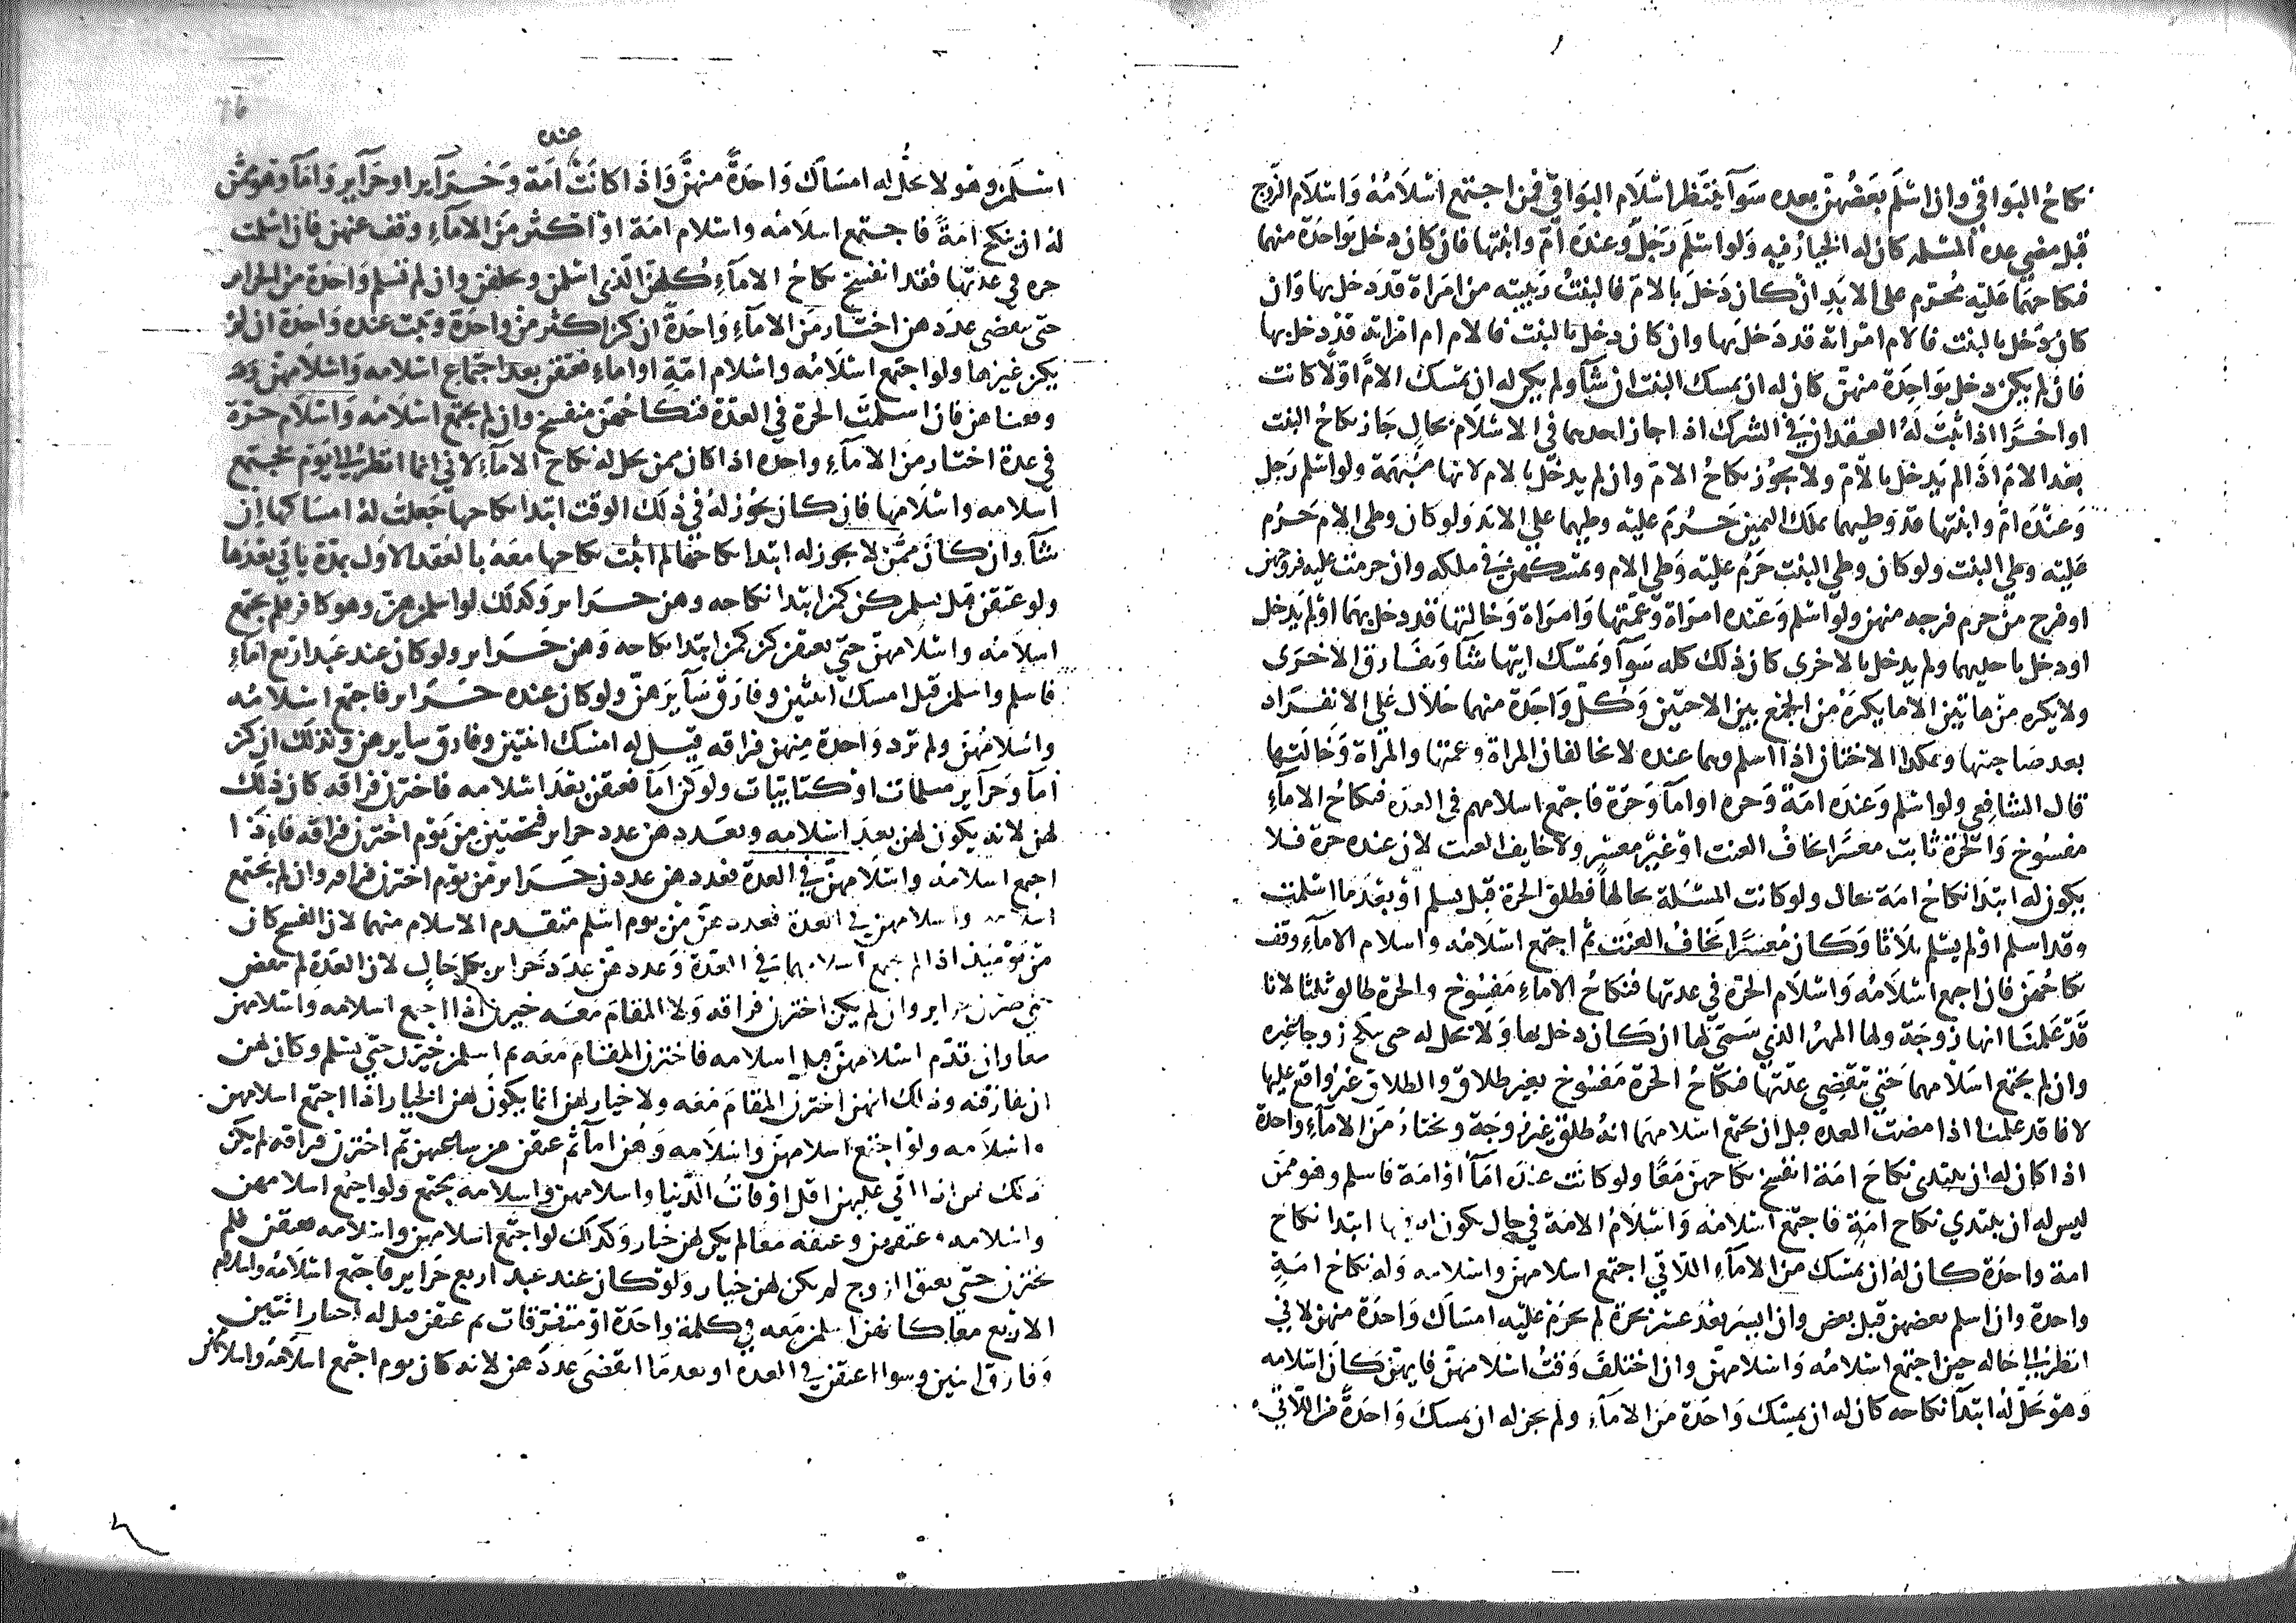 نكاح البواقي وان اسلم بعضهن بعده سوآ ينتظر اسلام البواقي فمن اجتمع اسلامه واسلام الزوج
قبل مضي عدة المسلمة كان له الخيار فيه ولو اسلم رجل وعنده ام وابنتها فان كان دخل بواحدة منهما
فنكاحهما عليه محرم على الابد ان كان دخل بالام فالبنت ربيبته من امراة قد دخل بها وان
كان دخل بالبنت فالام ام امراته قد دخل بها وان كان دخل بالبنت فالام ام امراته قد دخل بها
فان لم يكن دخل بواحدة منهن كان له ان يمسك البنت ان شآ ولم يكن له ان يمسك الام اولا كانت
او اخرا اذا ثبت له العقدان في الشرك اذا جاز احدهما في الاسلام بحال جاز نكاح البنت
بعد الام اذا لم يدخل بالام ولا يجوز نكاح الام وان لم يدخل بالام لانها مبهمة ولو اسلم رجل
وعنده ام وابنتها قد وطيهما بملك اليمين حرم عليه وطيهما على الابد ولو كان وطي الام حرم
عليه وطي البنت ولو كان وطي البنت حرم عليه وطي الام ويمسكهن في ملكه وان حرمت عليه فروجهن
او فرج من حرم فرجه منهن ولو اسلم وعنده امراة وعمتها وامراة وخالتها قد دخل بهما او لم يدخل
او دخل باحديهما ولم يدخل بالاخرى كان ذلك كله سوآ ويمسك ايتها شآ ويفارق الاخرى
ولا يكره من هاتين الا ما يكره من الجمع بين الاختين وكل واحدة منهما حلال على الانفراد
بعد صاحبتها وهكذا الاختان اذا اسلم وهما عنده لا يخالفان المراة وعمتها والمراة وخالتها
قال الشافعي ولو اسلم وعنده امة وحرة او امآ وحرة فاجتمع اسلامهم في العدة فنكاح الامآء
مفسوخ والحرة ثابت معسرا يخاف العنت او غير معسر ولا خايف العنت لان عنده حرة فلا
يكون له ابتدا نكاح امة بحال ولو كانت المسئلة بحالها فطلق الحرة قبل يسلم او بعد ما اسلمت
وقد اسلم او لم يسلم ثلاثا وكان معسرا يخاف العنت ثم اجتمع اسلامه واسلام الامآء وقف
نكاحهن فان اجتمع اسلامه واسلام الحرة في عدتها فنكاح الاماء مفسوخ والحرة طالق ثلثا لانا
قد علمنا انها زوجة ولها المهر الذي سمى لها ان كان دخل بها ولا تحل له حتى تنكح زوجا غيره
وان لم يجتمع اسلامهما حتى تنقضي عدتها فنكاح الحرة مفسوخ بغير طلاق والطلاق غير واقع عليها
لانا قد علمنا اذا مضت العدة قبل ان يجتمع اسلامهما انه طلق غير زوجة ويختار من الامآء واحدة
اذا كان له ان يبتدي نكاح امة انفسخ نكاحهن معا ولو كانت عنده امآ او امة فاسلم وهو ممن
ليس له ان يبتدي نكاح امة فاجتمع اسلامه واسلام الامة في حال يكون له فيها ابتدا نكاح
امة واحدة كان له ان يمسك من الامآء اللاتي اجتمع اسلامهن واسلامه وله نكاح امة
واحدة وان اسلم بعضهن قبل بعض وان ايسر بعد عسر بحرة لم يحرم عليه امساك واحدة منهن لاني
انظر الى حاله حين اجتمع اسلامه واسلامهن وان اختلف وقت اسلامهن فايهن كان اسلامه
وهو يحل له ابتدآ نكاحه كان له ان يمسك واحدة من الامآء ولم يجز له ان يمسك واحدة من اللاتي
اسلمن وهو لا يحل له امساك واحدة منهن واذا كانت عنده امة وحراير او حرآير وامآ وهو ممن
له ان ينكح امة فاجتمع اسلامه واسلام امة او اكثر من الامآء وقف عنهن فان اسلمت
حرة في عدتها فقد انفسخ نكاح الامآء كلهن الذي اسلمن وتخلفن وان لم تسلم واحدة من الحراير
حتى تنقضي عددهن اختار من الامآء واحدة ان كن اكثر من واحدة وثبت عنده واحدة ان لم
يكن غيرها ولو اجتمع اسلامه واسلام امة او اماء فعتقن بعد اجتماع اسلامه واسلامهن وقد
وقفناهن فان اسلمت الحرة في العدة فنكاحهن منفسخ وان لم يجتمع اسلامه واسلام حرة
في عدة اختار من الامآء واحدة اذا كان ممن يحل له نكاح الامآء لاني انما انظر الى يوم يجتمع
اسلامه واسلامها فان كان يجوز له في ذلك الوقت ابتدا نكاحها جعلت له امساكها ان
شآ وان كان ممن لا يجوز له ابتدا نكاحها لم اثبت نكاحها معه بالعقد الاول بمدة ياتي بعدها
ولو عتقن قبل يسلمن كن كمن ابتدا نكاحه وهن حراير وكذلك لو اسلمن هن وهو كافر فلم يجتمع
اسلامه واسلامهن حتى يعتقن كن كمن ابتدا نكاحه وهن حراير ولو كان عند عبد اربع امآء
فاسلم واسلمن قيل امسك اثنتين وفارق سآيرهن ولو كان عنده حراير فاجتمع اسلامه
واسلامهن ولم ترد واحدة منهن فراقه قيل له امسك اثنتين وفارق سايرهن وكذلك ان كن
امآ وحرآير مسلمات او كتابيات ولو كن امآ فعتقن بعد اسلامه فاخترن فراقه كان ذلك
لهن لانه يكون لهن بعد اسلامه وبعددهن عدد حراير فيحصين من يوم اخترن فراقه فاذا
اجتمع اسلامه واسلامهن في العدة فعددهن عدد حراير من يوم اخترن فراقه وان لم يجتمع
اسلامه واسلامهن في العدة فعددهن من يوم اسلم متقدم الاسلام منهما لان الفسخ كان
من يومئذ اذا لم يجتمع اسلامهما في العدة وعددهن عدد حراير بكل حال لان العدة لم تنقض
حتى صرن حراير وان لم يكن اخترن فراقه ولا المقام معه خيرن اذا اجتمع اسلامه واسلامهن
معا وان تقدم اسلامهن قبل اسلامه فاخترن المقام معه ثم اسلمن خيرن حتى يسلم وكان لهن
ان يفارقنه وذلك انهن اخترن المقام معه ولا خيار لهن انما يكون لهن الخيار اذا اجتمع اسلامهن
واسلامه ولو اجتمع اسلامهن واسلامه وهن امآ ثم عتقن من ساعتهن ثم اخترن فراقه لم يكن
ذلك لهن اذا اتى عليهن اقل اوقات الدنيا واسلامهن واسلامه مجتمع ولو اجتمع اسلامهن
واسلامه وعتقهن وعتقه معا لم يكن لهن خيار وكذلك لو اجتمع اسلامهن واسلامه فعتقن فلم
يخترن حتى يعتق الزوج لم يكن لهن خيار ولو كان عند عبد اربع حراير فاجتمع اسلامه واسلام
الاربع معا كانهن اسلمن معه في كلمة واحدة او متفرقات ثم عتقن قيل له اختار اثنتين
وفارق اثنين وسوا اعتقن في العدة او بعد ما انقضى عددهن لانه كان يوم اجتمع اسلامه واسلامهن